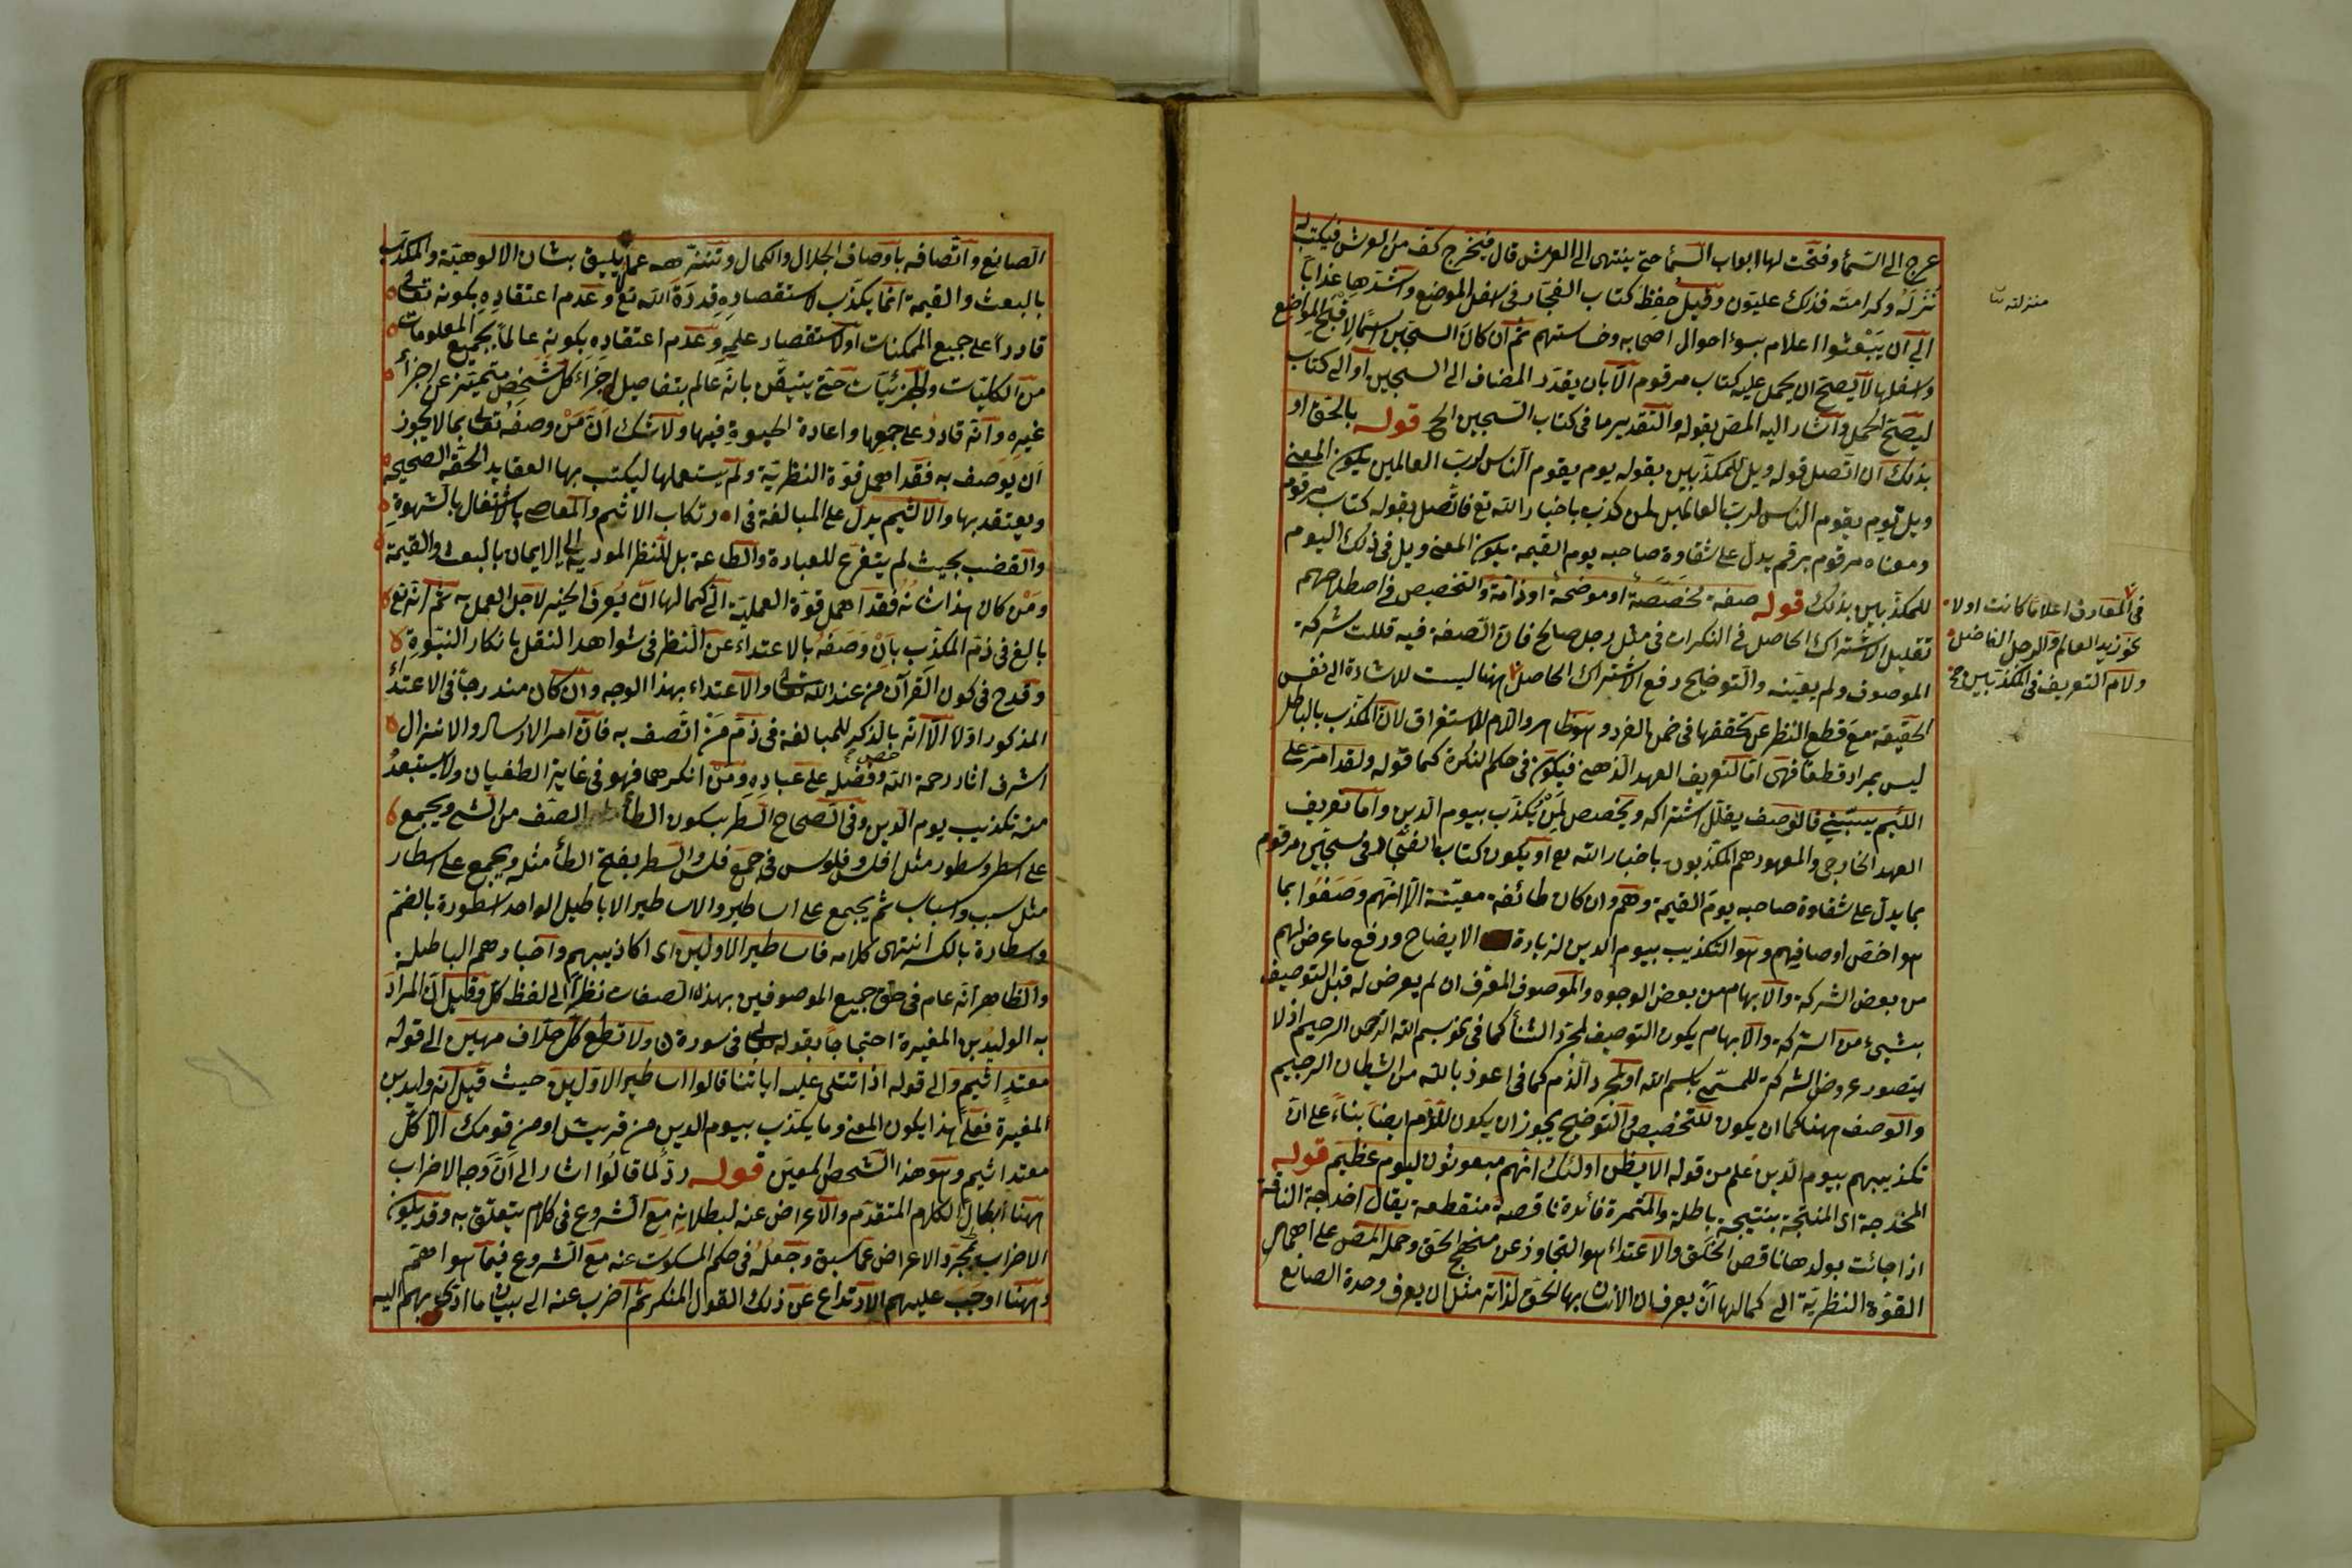 عرج الى السمأ وفتحت لها ابواب السمأ حتى ينتهى الى العرش قال فيخرج كف من العرش فيكتب له
نزله وكرامته فذلك عليون وقيل حفظ كتاب الفجار فى اسفل الموضع واشدها عذابا
الى ان يبعثوا اعلام بسوء احوال اصحابه وخساستهم ثم ان كان السجين اسما لاقبح المواضع
واسفلها لا يصح ان يحمل عليه كتاب مرقوم الا بان يقدر المضاف الى السجين او الى كتاب
ليصح الحمل واشار اليه المص بقوله والتقدير ما فى كتاب السجين الخ قوله بالحق او
بذلك ان اتصل قوله ويل للمكذبين بقوله يوم يقوم الناس لرب العالمين يكون المعنى
ويل يوم يقوم الناس لرب العالمين لمن كذب باخبار الله تع فاتصل بقوله كتاب مرقوم
ومعناه مرقوم برقم يدل على شقاوة صاحبه يوم القيمة يكون المعنى ويل فى ذلك اليوم
للمكذبين بذلك قوله صفة مخصصة او موضحة او ذامة والتخصيص فى اصطلاحهم
تقليل الاشتراك الحاصل فى النكرات فى مثل رجل صالح فان الصفة فيه قللت شركة
الموصوف ولم يعينه والتوضيح رفع الاشتراك الحاصل ههنا ليست للاشارة الى نفس
الحقيقة مع قطع النظر عن تحققها فى ضمن الفرد وهو ظاهر ولا للاستغراق لان المكذب بالباطل
ليس بمراد قطعا فهى اما لتعريف العهد الذهنى فيكون فى حكم النكرة كما قوله ولقد امر على
اللئيم يسبنى فالوصف يقلل اشتراكه ويخصص لمن يكذب بيوم الدين واما تعريف
العهد الخارجى والمعهود هم المكذبون باخبار الله تع او يكون كتاب الفجار فى سجين مرقوم
بما يدل على شقاوة صاحبه يوم القيمة وهم وان كان طائفة معينة الا انهم وصفوا بما
هو اخص اوصافهم وهو التكذيب بيوم الدين لزيادة الايضاح ورفع ما عرض لهم
من بعض الشركة والابهام من بعض الوجوه والموصوف المعرف ان لم يعرض له قبل التوصيف
بشىء من الشركة والابهام يكون التوصيف لمجرد الثنأ كما فى نحو بسم الله الرحمن الرحيم اذ لا
يتصور عروض الشركة للمسمى باسم الله او لمجرد الذم كما فى اعوذ بالله من الشيطان الرجيم
والوصف ههنا كما ان يكون للتخصيص والتوضيح يجوز ان يكون للذم ايضا بناء على ان
تكذيبهم بيوم الدين علم من قوله الا يظن اولئك انهم مبعوثون ليوم عظيم قوله
المخدجة اى المنتجة بنتيجة باطلة والمثمرة فائدة ناقصة منقطعة يقال اخدجة الناقة
اذا جائت بولدها ناقص الخلق والاعتداء هو التجاوز عن منهج الحق وحمله المص على اهمال
القوة النظرية الى كمالها ان يعرف الانسان بها الحق لذاته مثل ان يعرف وحدة الصانع
منزلته
فى المعارف اعلاما كانت اولا
نحو زيد العالم والرجل الفاضل
ولام التعريف فى المكذبين
الصانع واتصافه باوصاف الجلال والكمال وتنزهه عما يليق بشان الالوهية والمكذب
بالبعث والقيمة انما يكذب لاستقصاره قدرة الله تع وعدم اعتقاده بكونه تعالى
قادرا على جميع الممكنات او لاستقصار علمه وعدم اعتقاده بكونه عالما بجميع المعلومات
من الكليات والجزئيات حتى يتيقن بانه عالم بتفاصيل اجزاء كل شخص متميزة عن اجزأ
غيره وانه قادر على جمعها واعادة الحيوة فيها ولا شك ان من وصفه تعالى بما لا يجوز
ان يوصف به فقد اهمل قوة النظرية ولم يستعملها ليكتب بها العقايد الحقة الصحيحة
ويعتقد بها والاثيم يدل على المبالغة فى ارتكاب الاثم والمعاصى بالاشتغال بالشهوة
والغضب بحيث لم يتفرع للعبادة والطاعة بل للنظر المودى الى الايمان بالبعث والقيمة
ومن كان هذا شانه فقد اهمل قوة العملية الى كمالها ان يعرف الخير لاجل العمل به ثم انه تع
بالغ فى ذم المكذب بان وصفه بالاعتداء عن النظر فى شواهد النقل بانكار النبوة
وقدح فى كون القرآن من عند الله تعالى والاعتداء بهذا الوجه وان كان مندرجا فى الاعتدأ
المذكور اولا الا انه بالذكر للمبالغة فى ذم من اتصف به فان امر الارسال والانزال
خص
اشرف اثار رحمة الله وفضله على عباده ومن انكرهما فهو فى غاية الطغيان ولا يستبعد
منه تكذيب يوم الدين وفى الصحاح السطر بسكون الطأ الصف من الشى ويجمع
على اسطر وسطور مثل افلس وفلوس فى جمع فلس والسطر بفتح الطأ مثله ويجمع على اسطار
مثل سبب واسباب ثم يجمع على اساطير والاساطير الاباطيل الواحد اسطورة بالضم
واسطارة بالكسر انتهى كلامه فاساطير الاولين اى اكاذيبهم واخبارهم الباطلة
والظاهر انه عام فى حق جميع الموصوفين بهذه الصفات نظرا الى لفظ كل وقيل ان المراد
به الوليد بن المغيرة احتجاجا بقوله تعالى فى سورة ن ولا تطع كل حلاف مهين الى قوله
معتد اثيم والى قوله اذا تتلى عليه اياتنا قالوا اساطير الاولين حيث قيل انه وليد بن
المغيرة فعلى هذا يكون المعنى وما يكذب بيوم الدين من قريش او من قومك الا كل
معتد اثيم وهو هذا الشخص المعين قوله رد لما قالوا اشار الى ان وجه الاضراب
ههنا ابطال الكلام المتقدم والاعراض عنه لبطلانه مع الشروع فى كلام يتعلق به وقد يكون
الاضراب لمجرد الاعراض عما سبق وجعله فى حكم المسكوت عنه مع الشروع فيما هو اهم
وههنا اوجب عليهم الارتداع عن ذلك القول المنكر ثم اضرب عنه الى بيان ما ادى بهم اليه